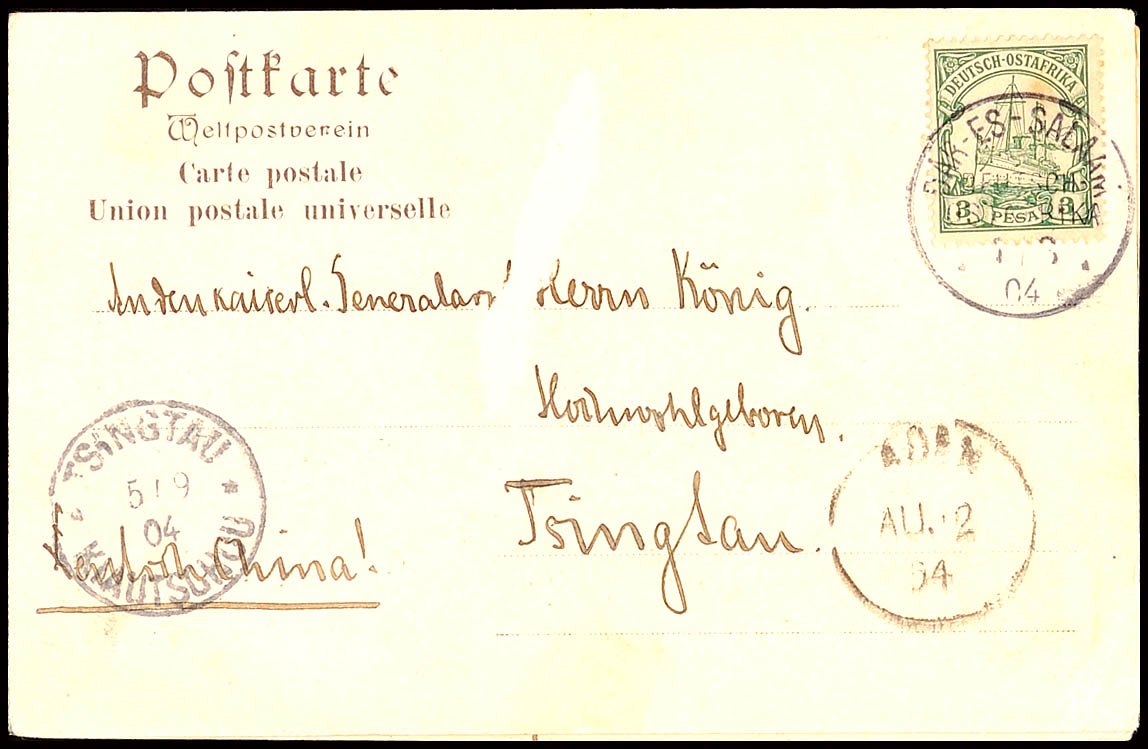 Postkarte
Weltpostverein
Carte postale
Union postale universelle
DEUTSCH-OSTAFRIKA
3 PESA 3
DAR-ES-SALAAM
04
An den kaiserl. Herrn König.
Hochwohlgeboren.
Tsingtau.
Deutsch China!
TSINGTAU
5/9
04
KIAUTSCHOU
ADEN
AU. 2
04